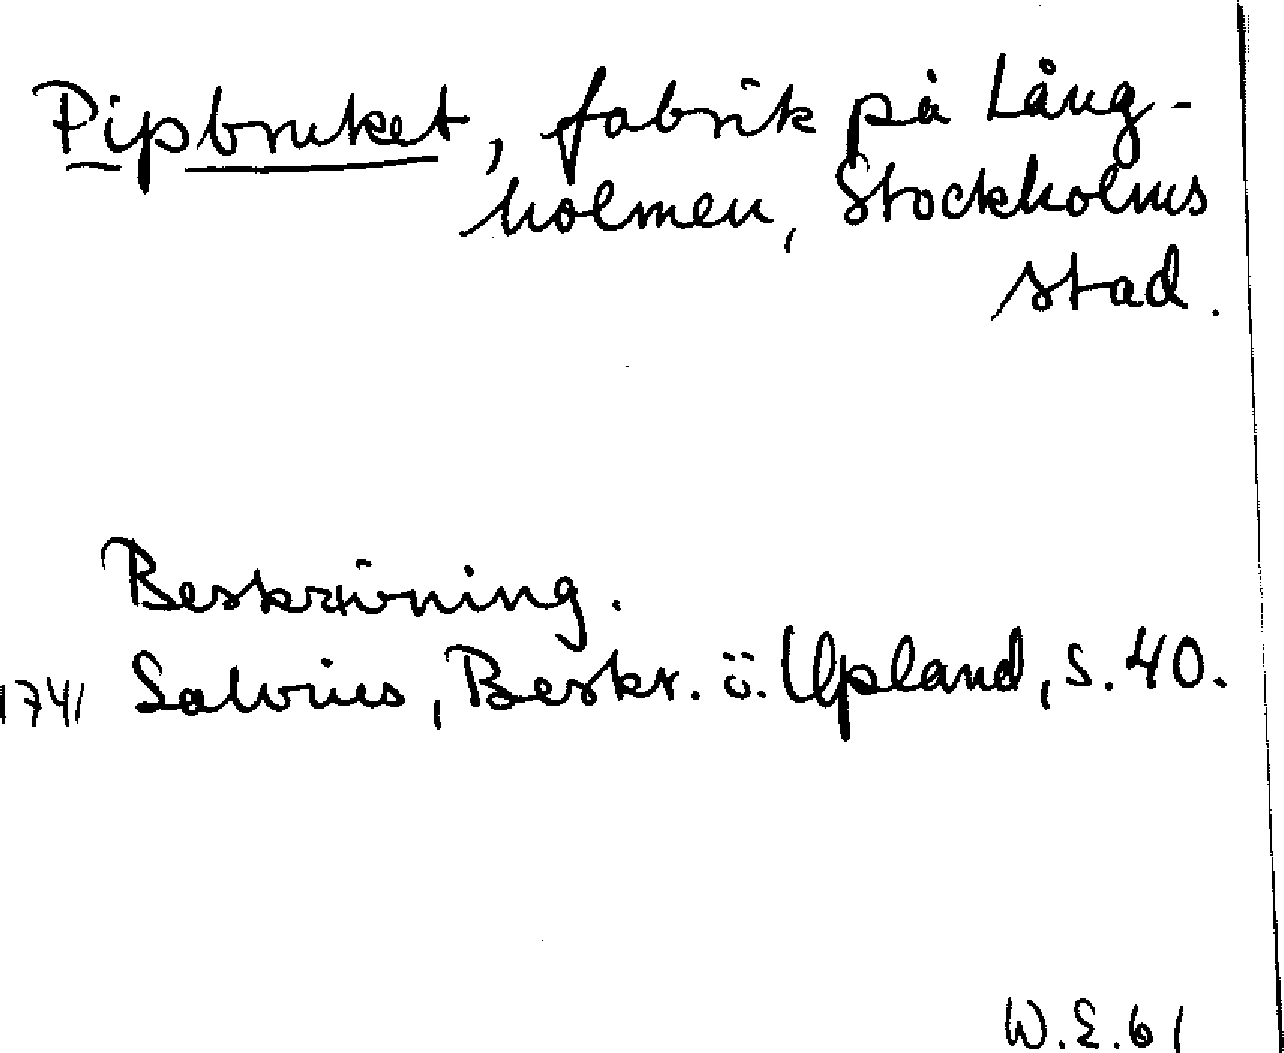 Pipbruket, fabrik på Lång-
holmen, Stockholms
stad.
Beskrivning.
1741 Salvius, Beskr. ö. Upland, s. 40.
W.E.61